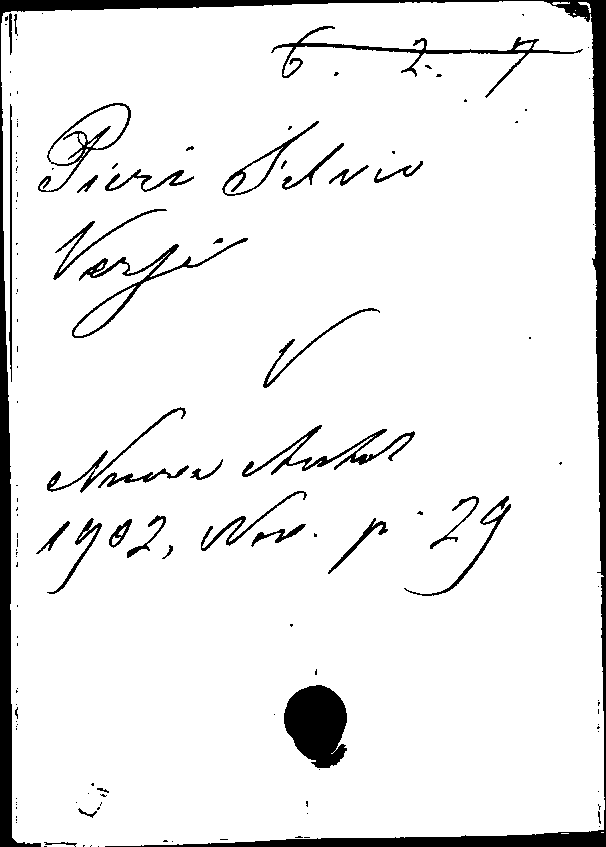 6. 2. 7
Pieri Silvio
Versi
V
Nuova Antol
1902, Nov. p. 29